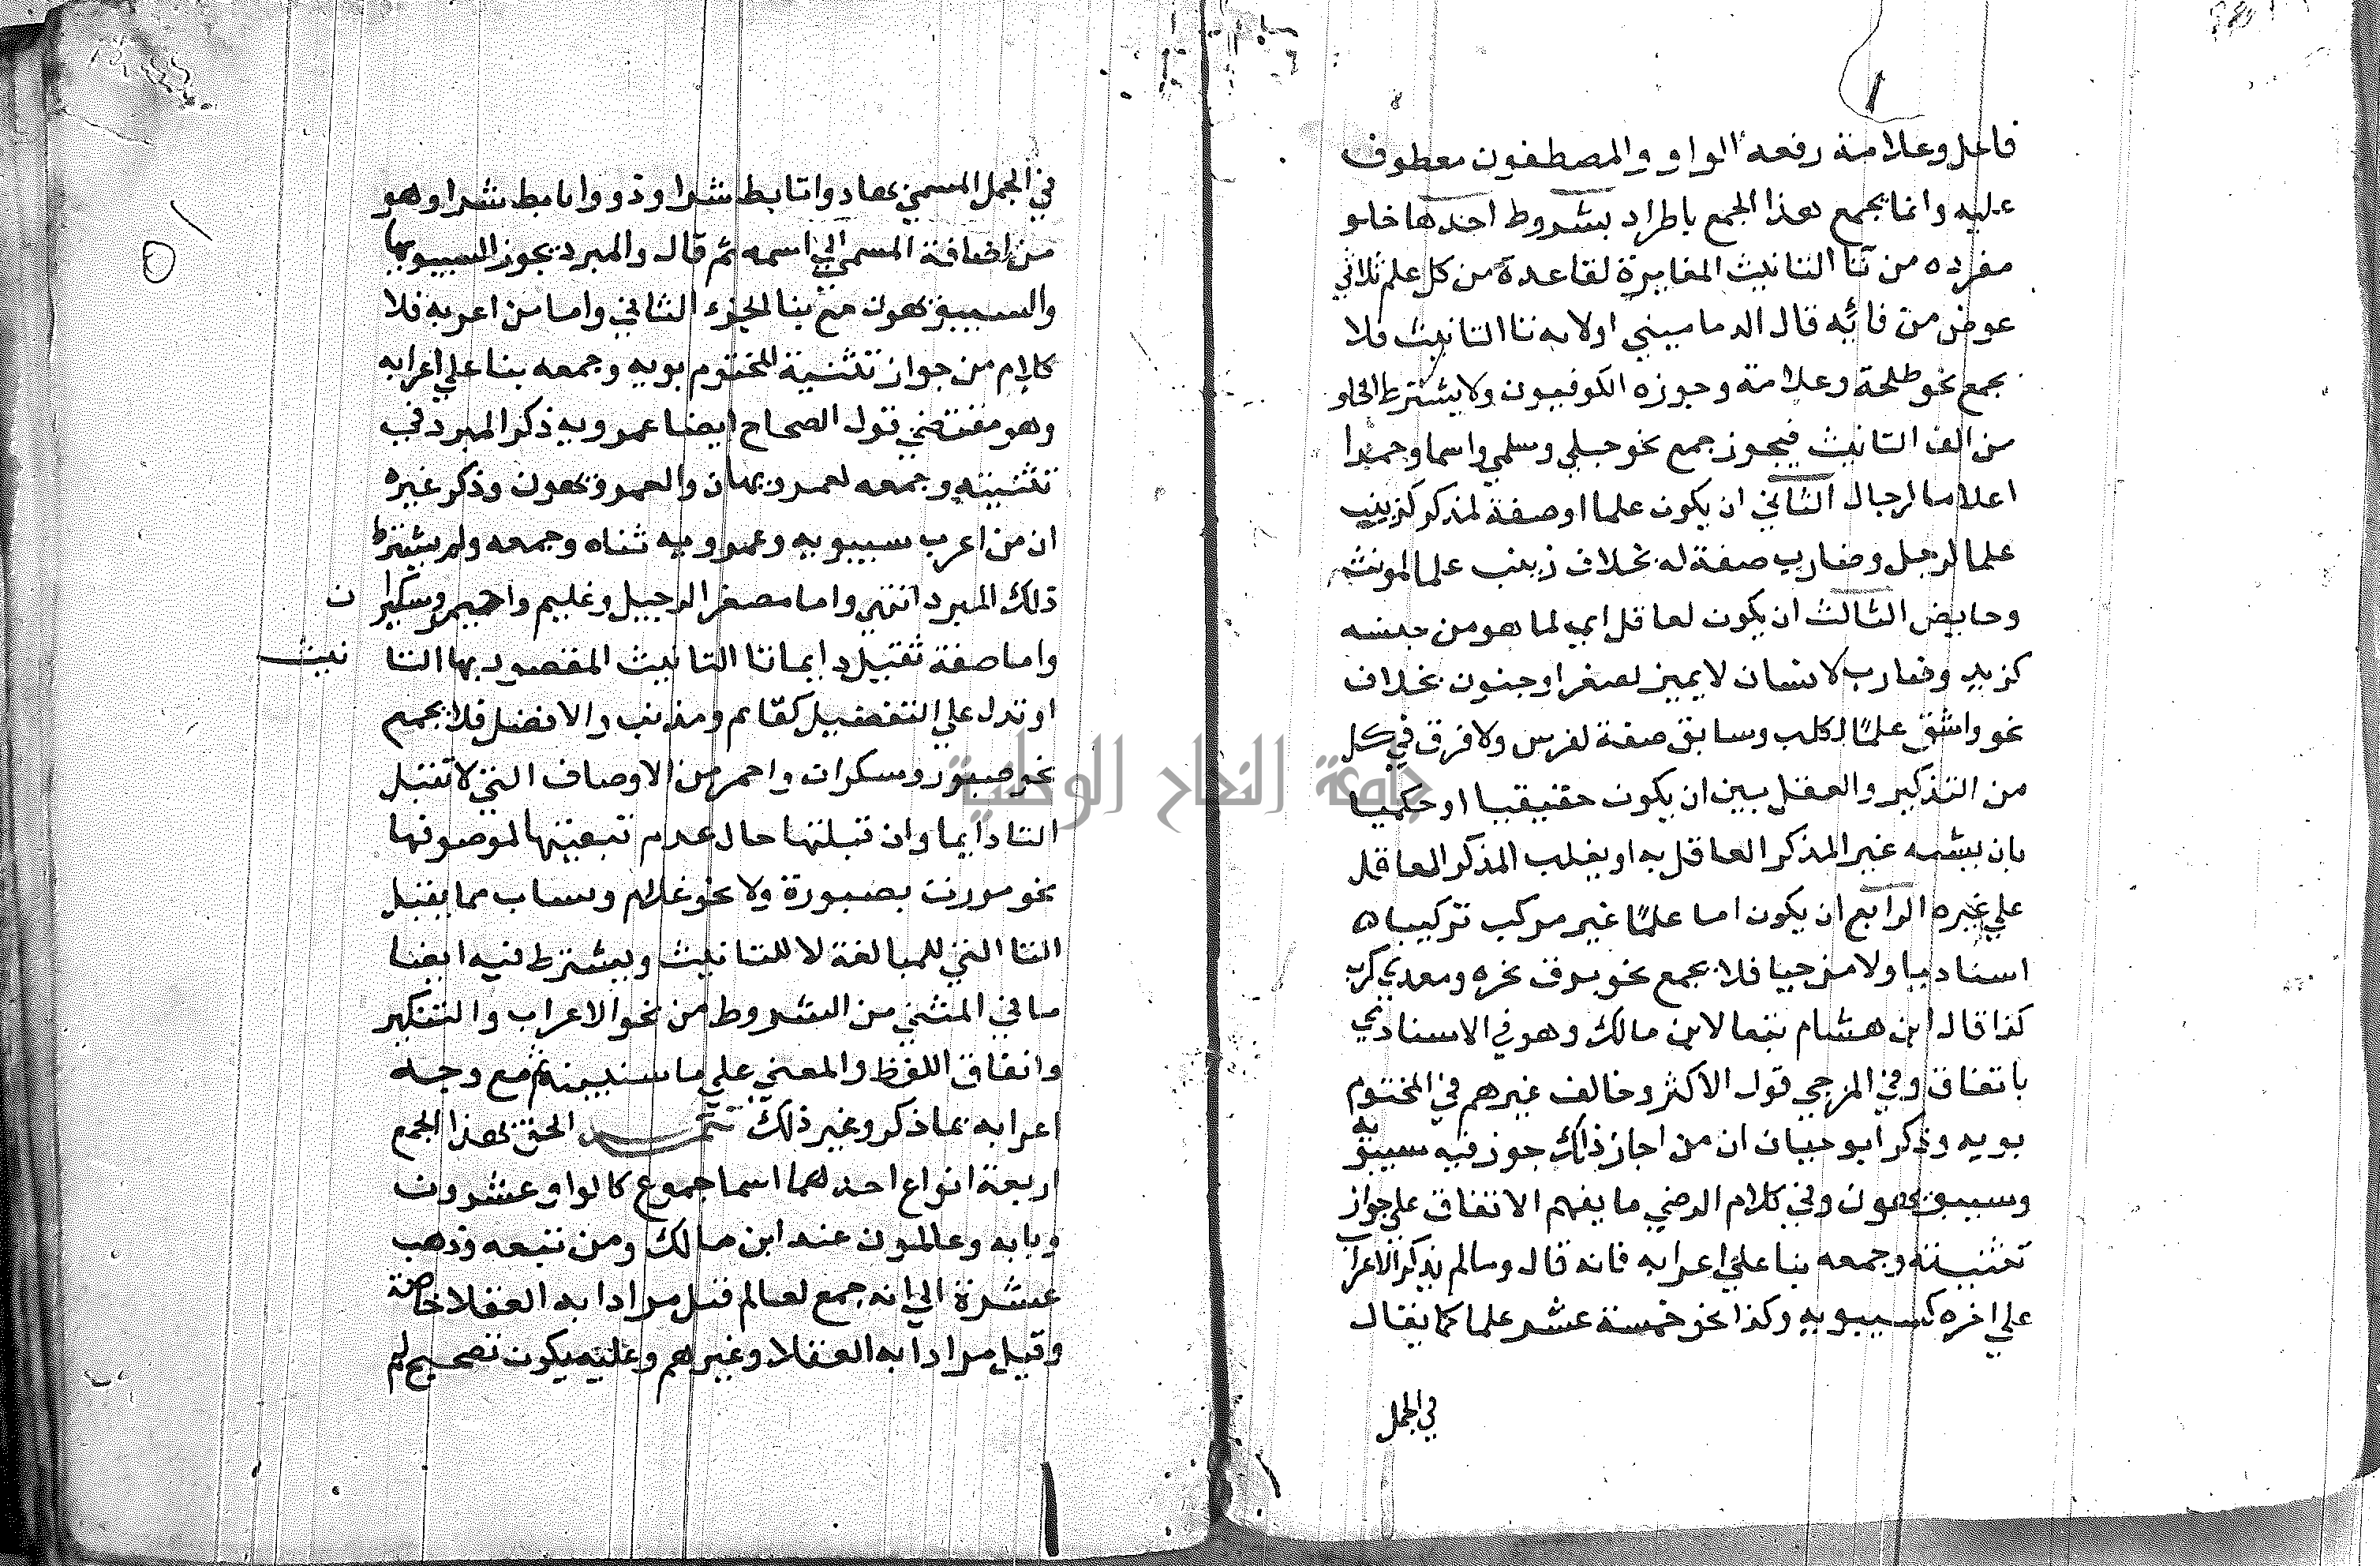 فاعل وعلامة رفعه الواو والمصطفون معطوف
عليه وانما يجمع هذا الجمع باطراد بشروط احدها خلو
مفرده من تا التانيث المغايرة لقاعدة من كل علم ثلاثي
عوض من فائه قال الدماميني اولابه تا التانيث فلا
يجمع نحو طلحة وعلامة وجوزه الكوفيون ولا يشترط الخلو
من الف التانيث فيجوز جمع نحو حبلي وسلمي واسما وحمدا
اعلاما لرجال الثاني ان يكون علما او صفة لمذكر كزينب
علما لرجل وضارب صفة له بخلاف زينب علما لمونث
وحايض الثالث ان يكون لعاقل اي لما هو من جنسه
كزيد وضارب لانسان لا يميز لصغر او جنون بخلاف
نحو واشق علمًا لكلب وسابق صفة لفرس ولا فرق في كل
من التذكير والعقل بين ان يكون حقيقيا او حكميا
بان يشبه غير المذكر العاقل به او يغلب المذكر العاقل
علي غيره الرابع ان يكون اما علمًا غير مركب تركيبا
اسناديا ولا مزجيا فلا يجمع نحو برق نحره ومعدي كرب
كذا قال ابن هشام تبعا لابن مالك وهو في الاسنادي
باتفاق وفي المزجي قول الاكثر وخالف غيرهم في المختوم
بويه وذكر ابو حيان ان من اجاز ذلك جوز فيه سيبويه
وسيبويهون وفي كلام الرضي ما يفهم الاتفاق علي جواز
تثنيته وجمعه بنا علي اعرابه فانه قال وسالم يذكر الاعراب
علي اخره كسيبويه وكذا نحو خمسة عشر علما كما يقال
في الجمل
في الجمل المسمي بها ذوا تابط شرا وذوو اتابط شرا وهو
من اضافة المسمي الي اسمه ثم قال والمبرد يجوز السيبويهان
والسيبويهون مع بنا الجزء الثاني واما من اعربه فلا
كلام من جواز تثنية المختوم بويه وجمعه بنا علي اعرابه
وهو مقتضي قول الصحاح ايضا عمرويه ذكر المبرد في
تثنيته وجمعه العمرويهان والعمرويهون وذكر غيره
ان من اعرب سيبويه وعمرويه ثناه وجمعه ولم يشترط
ذلك المبرد انتهي واما مصغرا لرجيل وغليم واحيمر وسكيران
واما صفة تقبل دايما تا التانيث المقصود بها التانيث
او تدل علي التفضيل كقائم ومذنب والافضل فلا يجمع
نحو صبور وسكران واحمر من الاوصاف التي لا تقبل
التا دايما وان قبلتها حال عدم تبعيتها لموصوفها
نحو مررت بصبورة ولا نحو علام ونساب مما يقبل
التا التي للمبالغة لا للتانيث ويشترط فيه ايضا
ما في المثني من الشروط من نحو الاعراب والتنكير
واتفاق اللفظ والمعني علي ما سنبينه ثم مع وجه
اعرابه بما ذكر وغير ذلك تتمه الحق بهذا الجمع
اربعة انواع احدها اسما جموع كالوا وعشرون
وبابه وعالمون عند ابن مالك ومن تبعه وذهب
عشرة الي انه جمع لعالم قبل مرادا به العقلا خاصة
وقيل مرادا به العقلا وغيرهم وعليه يكون تصحيح لم
جامعة النجاح الوطنية